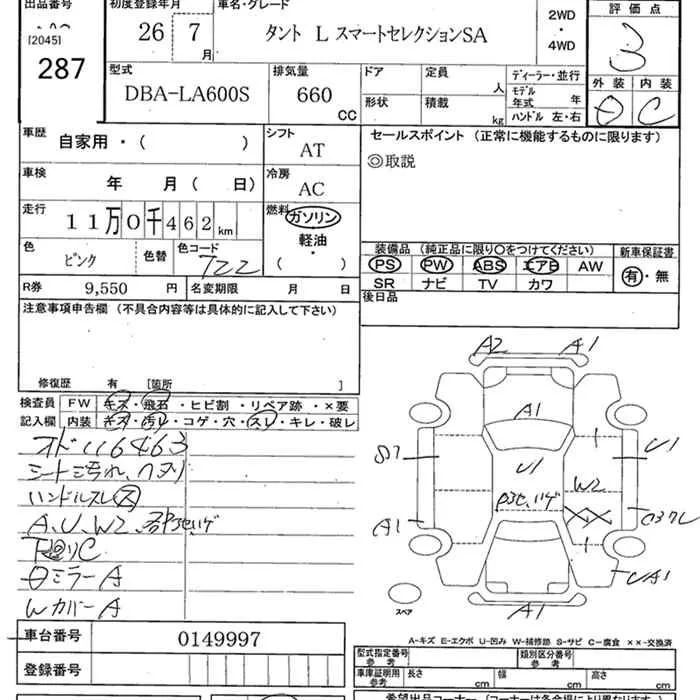 出品番号 初度登録年月 車名・グレード 2WD・4WD 評価点
[2045]
287
26 7月 タント L スマートセレクションSA
3
型式 排気量 ドア 定員 人 ディーラー・並行 外装 内装
DBA-LA600S 660 CC 形状 積載 kg モデル年式 年 ハンドル 左・右
C
車歴 自家用・( ) シフト AT セールスポイント (正常に機能するものに限ります)
◎取説
車検 年 月( 日) 冷房 AC
走行 11万0千462km 燃料 ガソリン
軽油
・
( )
色 ピンク 色替 色コード T22
装備品 (純正品に限り〇をつけてください) 新車保証書
PS PW ABS エアB AW 有・無
SR ナビ TV カワ
R券 9,550 円 名変期限 月 日 後日品
注意事項申告欄 (不具合内容等は具体的に記入して下さい)
修復歴 有 [箇所 ]
検査員 FW キズ・飛石・ヒビ割・リペア跡・×要
記入欄 内装 キズ・汚レ・コゲ・穴・スレ・キレ・破レ
オド116463
シート汚れ、ヘタリ
ハンドルスレ
A、U、W2、
下回りC
ミラーA
WカバーA
A2 A1
A1
U1
U1
W2
A1
UA1
A1
スペア
車台番号 0149997
登録番号
A-キズ E-エクボ U-凹み W-補修跡 S-サビ C-腐食 ××-交換済
型式指定番号 参考 類別区分番号 参考
車庫証明用 参考 長さ cm 幅 cm 高さ cm